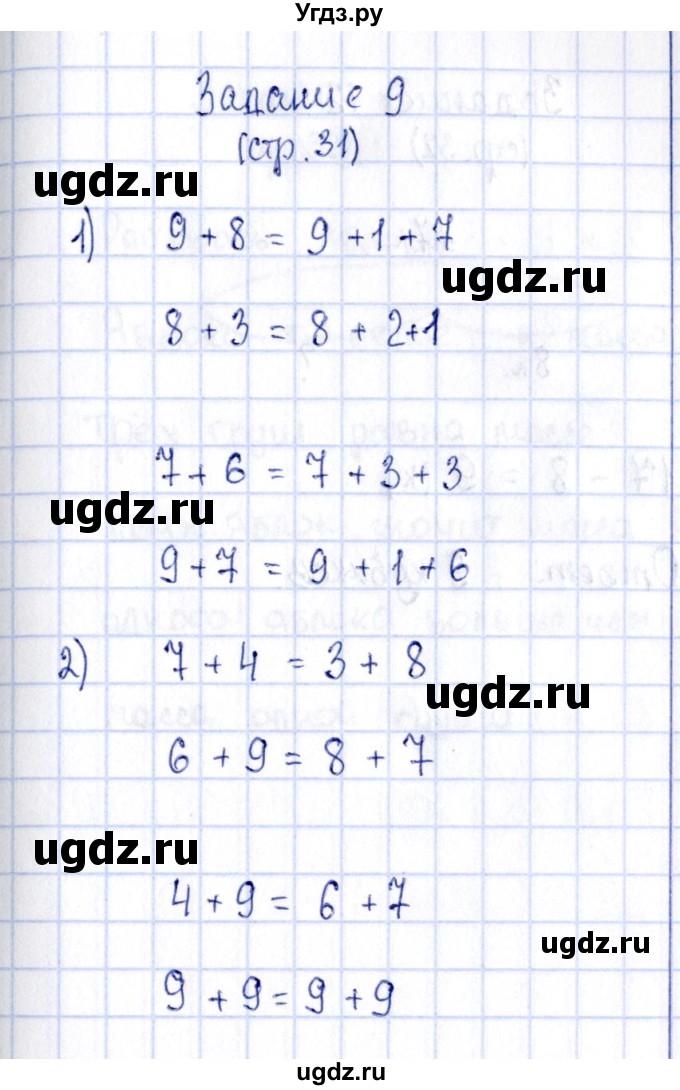 Угдз.ру
Задание 9
(стр. 31)
ugdz.ru
1) 9 + 8 = 9 + 1 + 7
ugdz.ru
8 + 3 = 8 + 2 + 1
7 + 6 = 7 + 3 + 3
ugdz.ru
9 + 7 = 9 + 1 + 6
2) 7 + 4 = 3 + 8
ugdz.ru
6 + 9 = 8 + 7
ugdz.ru
4 + 9 = 6 + 7
ugdz.ru
9 + 9 = 9 + 9
ugdz.ru